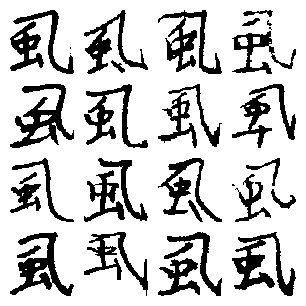 虱虱虱虱
虱虱虱虱
虱虱虱虱
虱虱虱虱